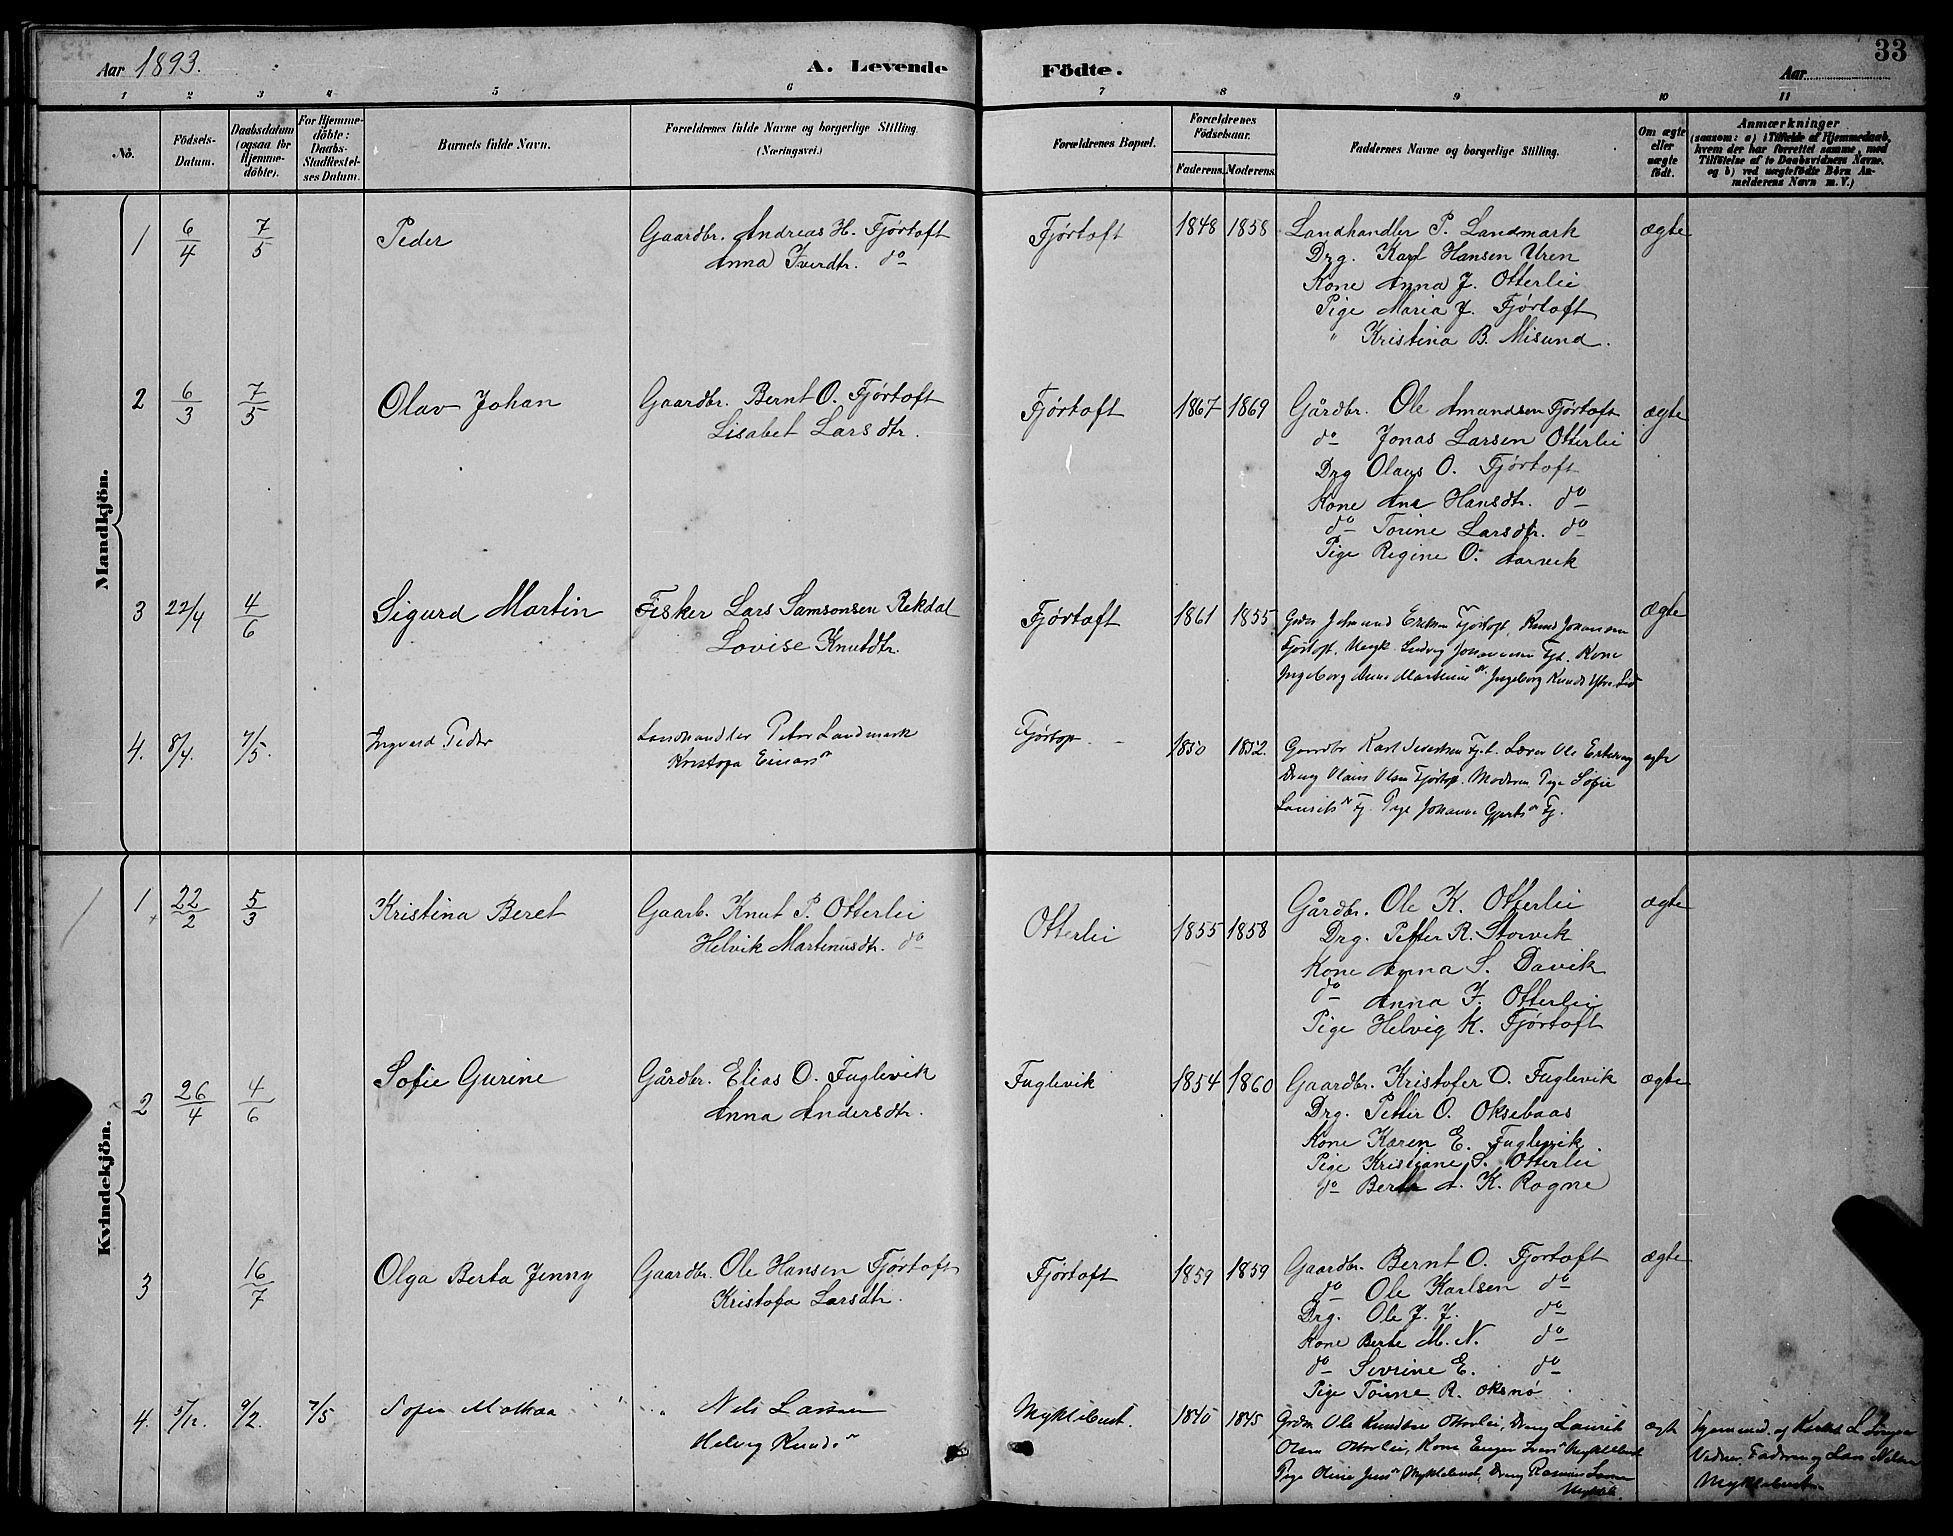 Aar 1893. A. Levende Födte. Aar 33
1 2 3 4 5 6 7 8 9 10 11
No. Födsels-Datum. Daabsdatum (ogsaa for Hjemme-döbte). For Hjemme-döbte: Daabs-Stadfæstel-ses Datum. Barnets fulde Navn. Forældrenes fulde Navne og borgerlige Stilling. (Næringsvei.) Forældrenes Bopæl. Forældrenes Födselsaar. Faderens. Moderens. Faddernes Navne og borgerlige Stilling. Om ægte eller uægte födt. Anmærkninger (saasom: a) i Tilfælde af Hjemmedaab, hvem der har forrettet samme, med Tilföielse af to Daabsvidners Navne. og b) ved uægtefödte Börn An-melderens Navn m. V.)
Mandkjön.
1 6/4 7/5 Peder Gaardbr. Andreas H. Fjørtoft Fjørtoft 1848 1858 Landhandler P. Landmark ægte
Anna Iverdtr. do Drg. Karl Hansen Uren
Kone Anna J. Otterlei
Pige Maria J. Fjørtoft
" Kristina B. Misund.
2 6/3 7/5 Olav Johan Gaardbr. Bernt O. Fjørtoft Fjørtoft 1867 1869 Gårdbr. Ole Amundsen Fjørtoft ægte
Lisabet Larsdtr. do Jonas Larsen Otterlei
Drg Olaus O. Fjørtoft
Kone Ane Hansdtr. do
do Torine Larsdtr. do
Pige Regine O. Aarvik
3 22/4 4/6 Sigurd Martin Fisker Lars Samsonsen Rekdal Fjørtoft 1861 1855 Knud Johansen ægte
Lovise Knutdtr. Fjørtoft. Kone
Ingeborg
4. 8/4. 7/5. Ingvard Peder Landhandler Peter Landmark Fjørtop 1850 1852. Gaardbr Karl ægte
Kristofa Einars Dreng Olaus Olsen Fjørtop. Moderen Pige Sofie
Pige Johanne
Kvindekjön.
1 22/2 5/3 Kristina Beret Gaarb. Knut P. Otterlei Otterlei 1855 1858 Gårdbr. Ole K. Otterlei ægte
Helvik Martinusdtr. do Drg. Petter R. Storvik
Kone Anna S. Davik
do Anna J. Otterlei
Pige Helvig K. Fjørtoft
2 26/4 4/6 Sofie Gurine Gårdbr. Elias O. Fuglevik Fuglevik 1854 1860 Gaardbr. Kristofer O. Fuglevik ægte
Anna Andersdtr. Drg. Petter O. Oksebaas
Kone Karen E. Fuglevik
Pige Kristiane S. Otterlei
do Berta A. K. Rogne
3 16/7 Olga Berta Jenny Gaardbr. Ole Hansen Fjørtoft Fjørtoft 1859 1859 Gaardbr. Bernt O. Fjørtoft ægte
Kristofa Larsdtr. do Ole Karlsen do
Drg. Ole J. J. do
Kone Berte M. N. do
do Sevrine E. do
Pige Torine R. Oksnø
4. 5/12. 9/2. 7/5 Nils Larsen Myklebust. 1840 1845 Ole Knudsen Otterlei, Dreng Laurit ægte
Helvig Knuds Olsen Otterlei, Kone
Pige Oline Jens Myklebust, Dreng Rasmus Larsen
Myklebust.